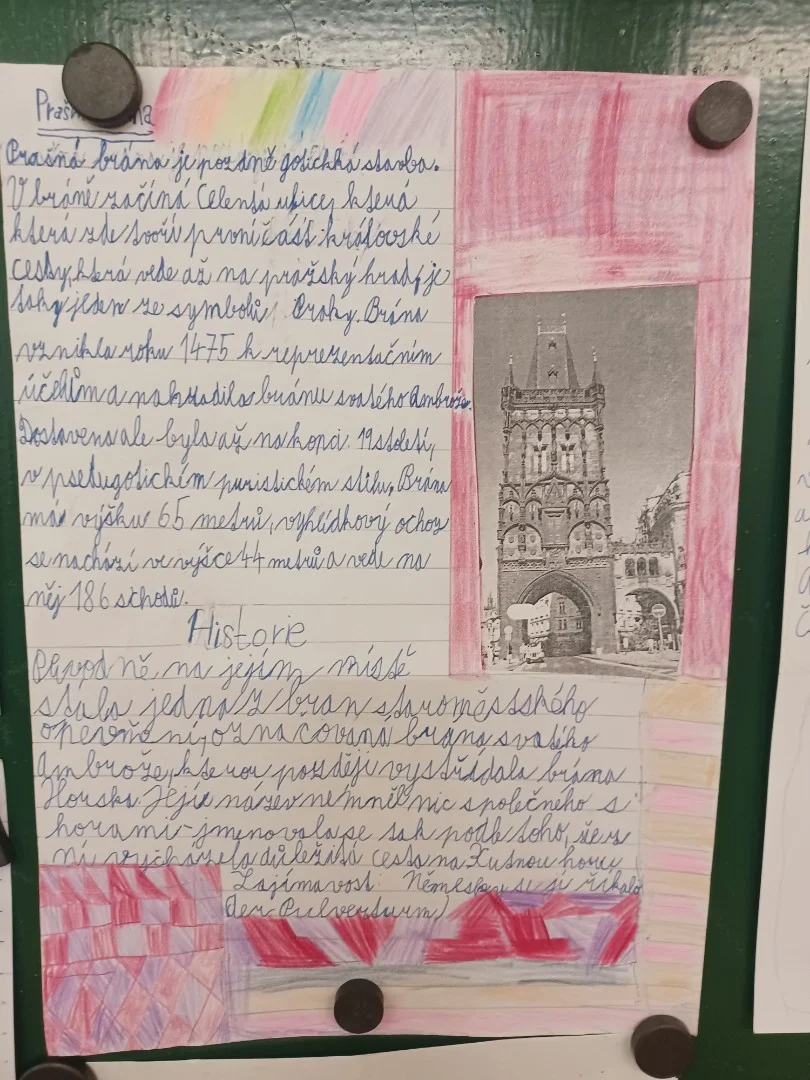 Prašná brána je pozdně gotichká stavba.
V bráně začíná Celentá ulice, která
která zde tvoří první část královské
cesty, která vede až na pražský hrad, je
taky jden ze symbolů Prahy. Brána
vznikla roku 1475 k reprezentačním
účelům a nahradila bránu svatého Ambrože.
Dostavena ale byla až na konci 19 století,
v pseudogotickém puristickém stilu. Brána
má výšku 65 metrů, vyhlídkový ochoz
se nachází ve výšce 44 metrů a vede na
něj 186 schodů.
Historie
Původně na jejím místě
stála jedna z bran staroměstského
opevňení, označovaná brána svatého
Ambrože, kterou později vystřídala brána
Horska. Jejíž název neměl nic společného s
horami - jmenovala se tak podle toho, že z
ní vycházela důležitá cesta na Kutnou horu,
Zajímavost: Německy se jí říkalo
Der Pulverturm)